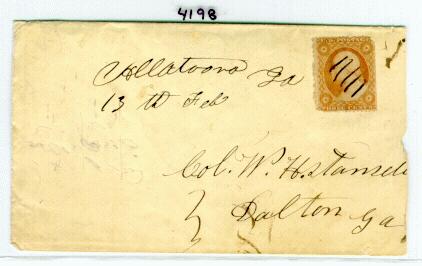 4198
Allatoona Ga
13th Feb
Col. W. H. Stansell
Dalton Ga